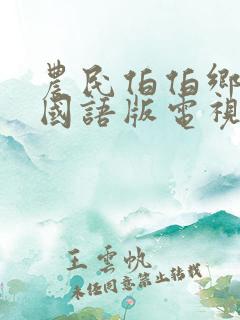 農民伯伯鄉
國語版電視
王雲帆
未经同意禁止转载